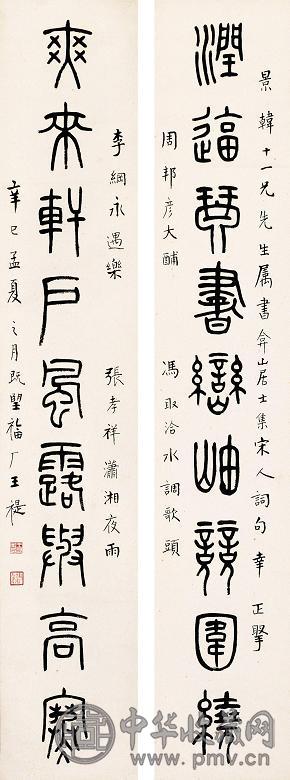 景韓十一兄先生属書弇山居士集宋人詞句幸 正
潤逼琴書巒岫競圍繞
周邦彦大酺 馮取洽水調歌頭
李綱永遇樂 張孝祥瀟湘夜雨
爽來軒戶風露與高寒
辛巳孟夏之月既朢福厂王禔
中华收藏网
www.pmv.cn